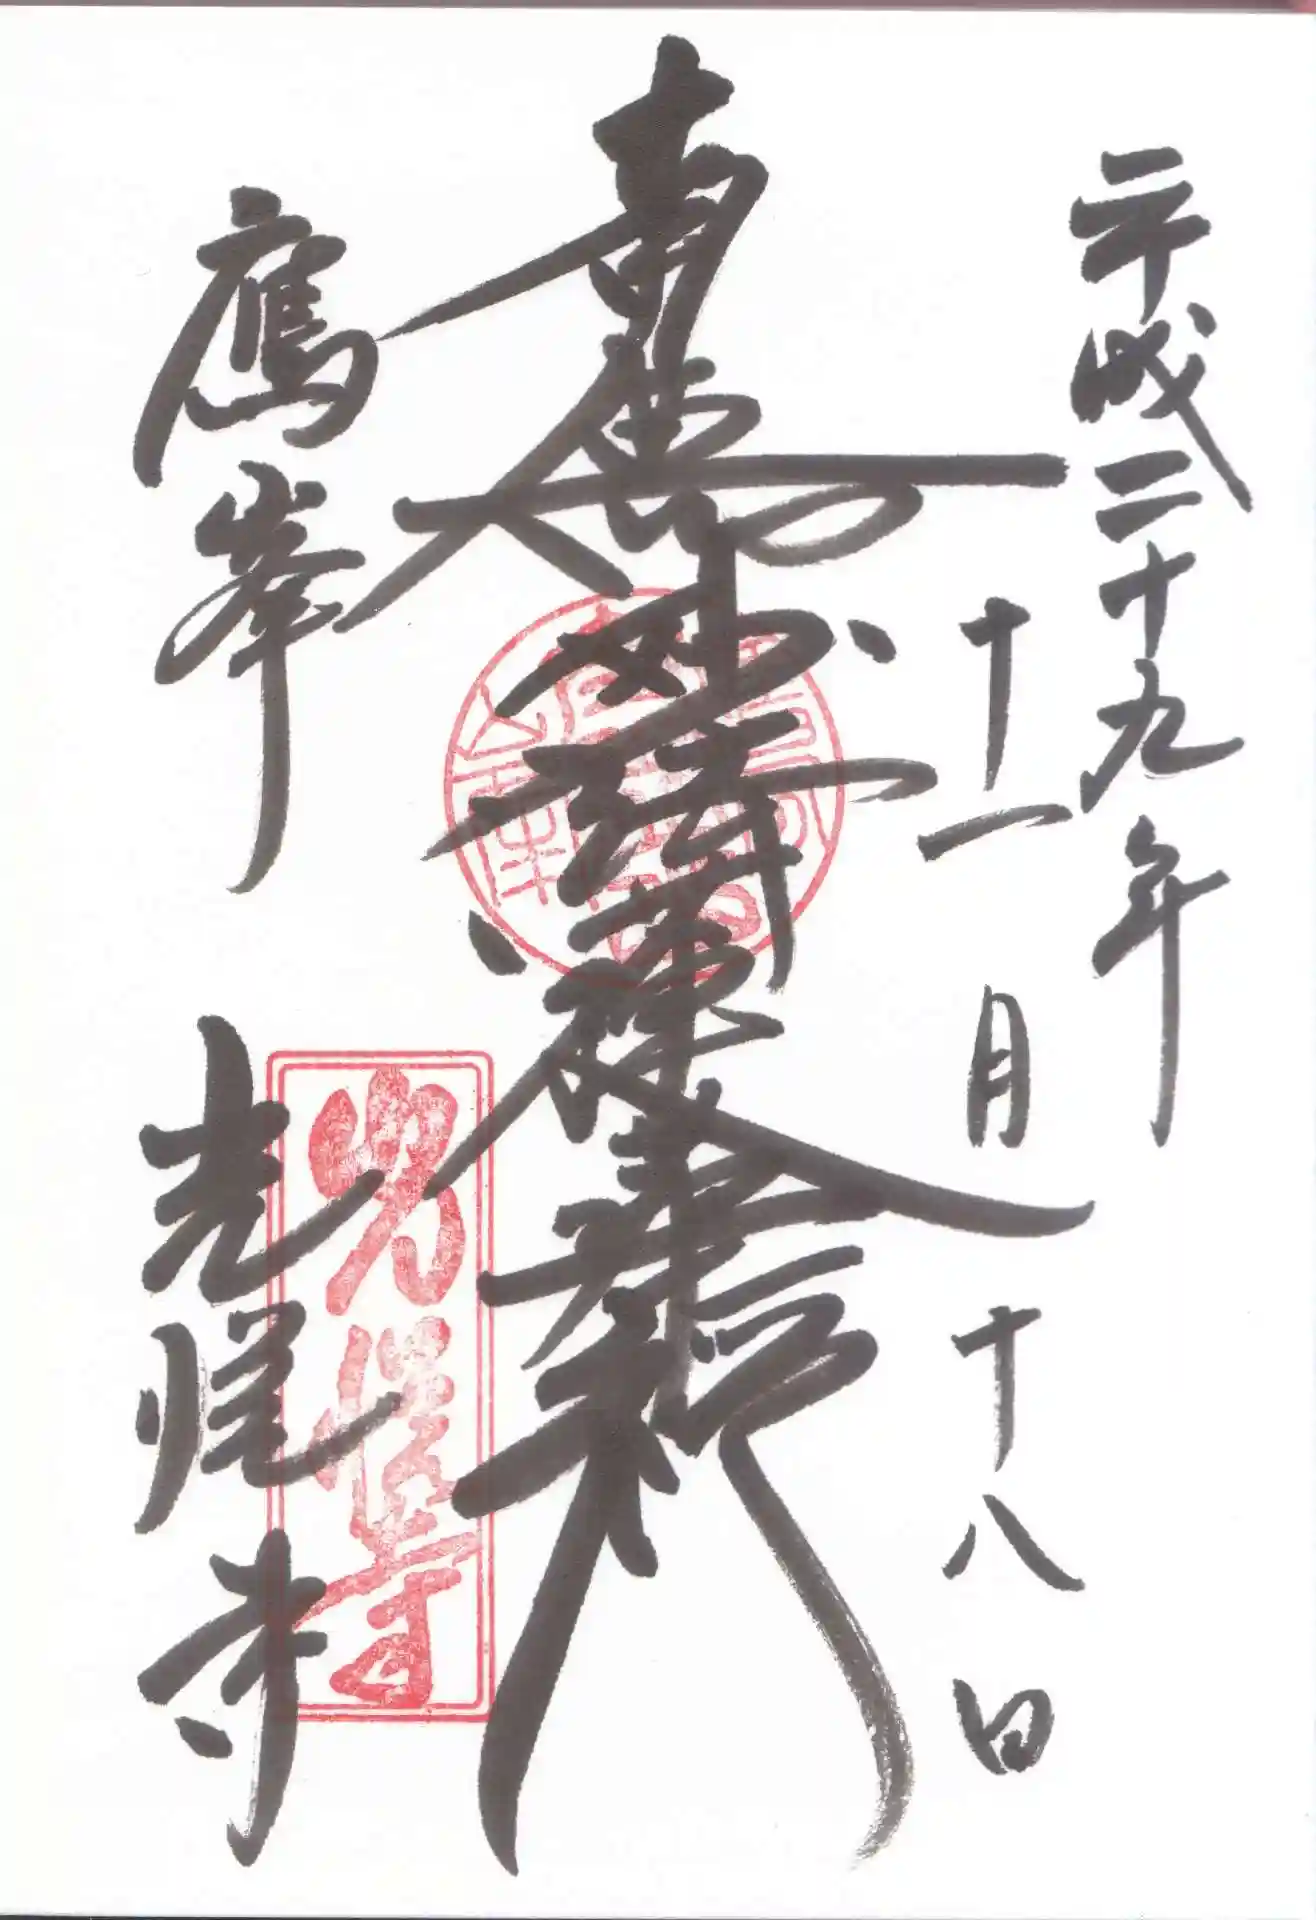 平成二十九年
十一月十八日
南無妙法蓮華経
鷹峯
光悦寺
光悦寺